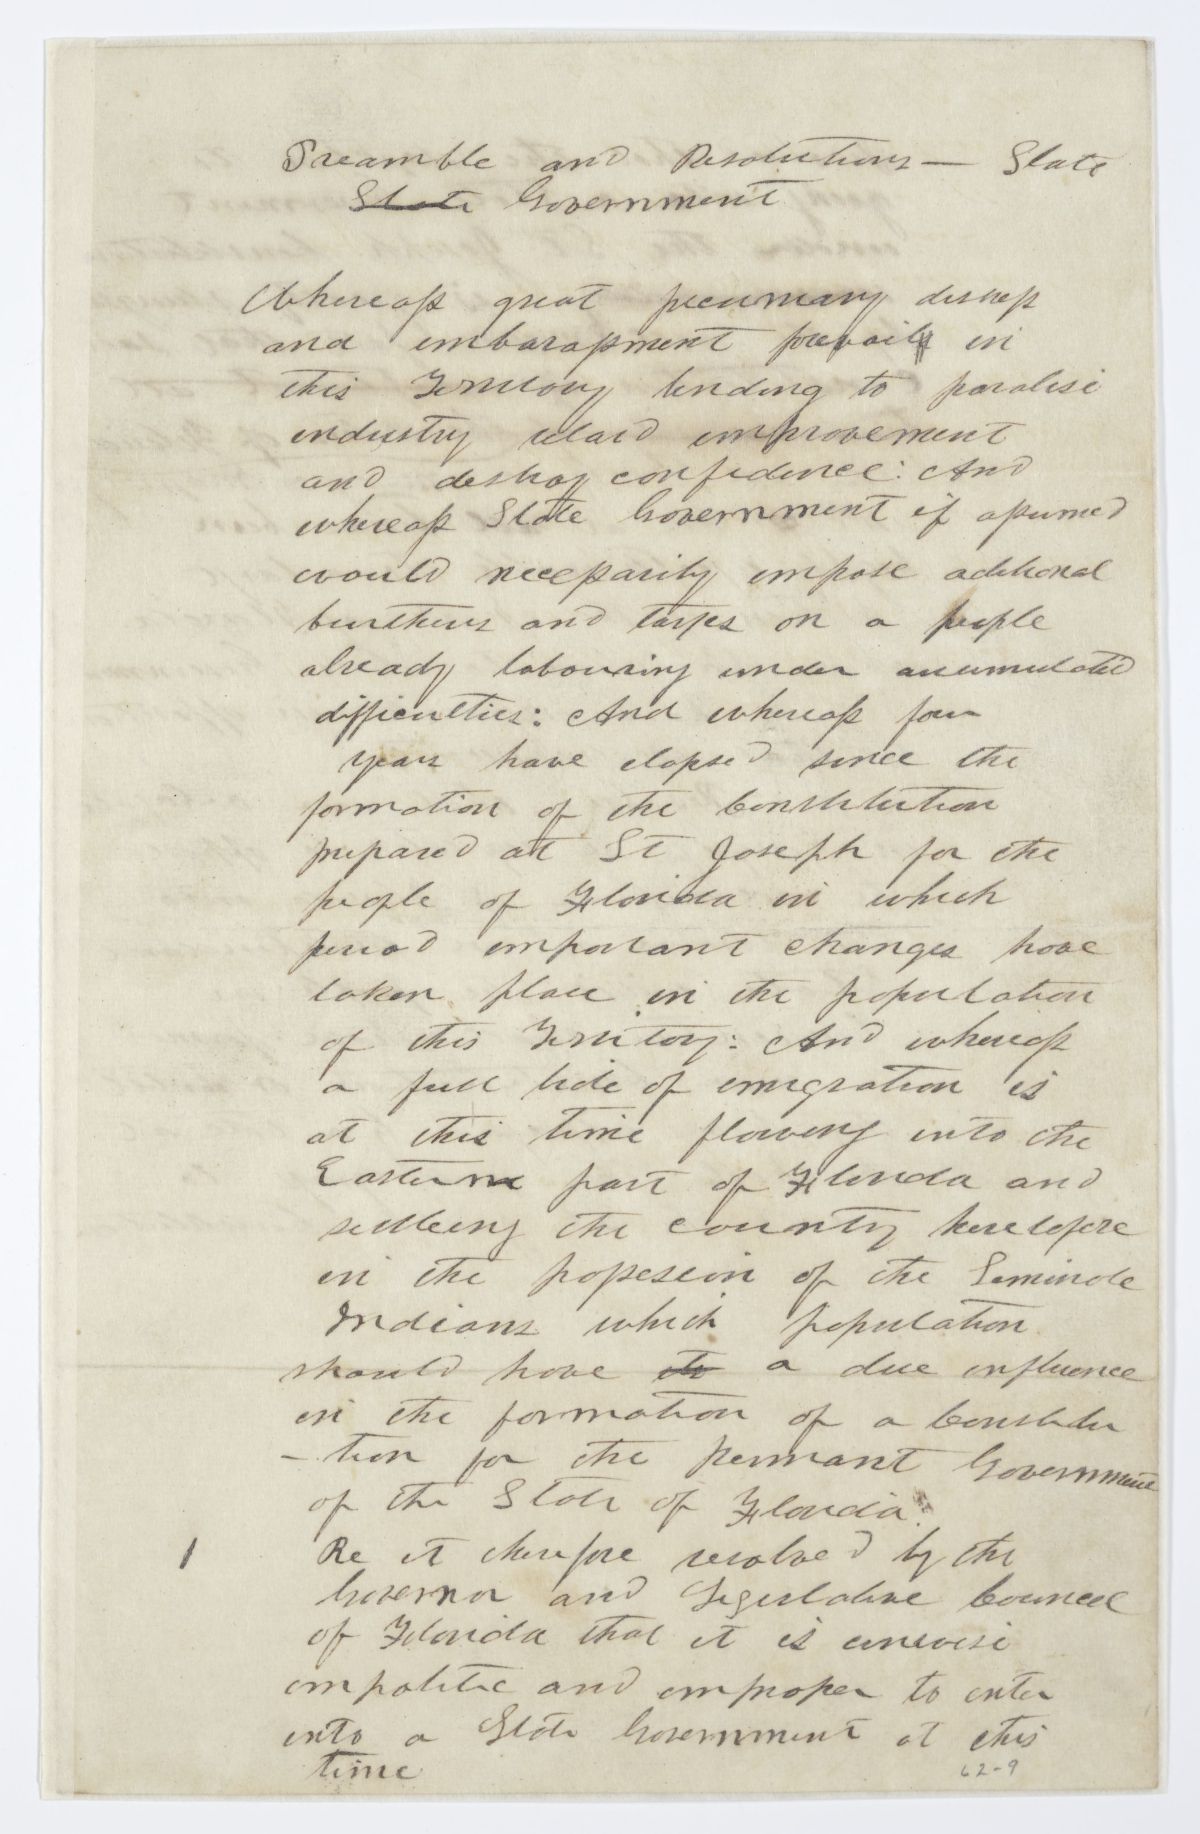 Preamble and Resolutions — State
State Government
Whereass great pecuniary distress
and embarassment prevails in
this Territory tending to paralise
industry retard improvement
and destroy confidence: And
whereass State Government if assumed
would necessarily impose aditional
burthens and taxes on a people
already labouring under accumulated
difficulties: And whereass four
years have elapsed since the
formation of the Constitution
prepared at St Joseph for the
people of Florida in which
period important changes have
taken place in the population
of this Territory: And whereass
a full tide of emigration is
at this time flowing into the
Eastern part of Florida and
settleing the country heretofore
in the possession of the Seminole
Indians which population
should have to a due influence
in the formation of a Constitu
-tion for the permant Government
of the State of Florida.
1 Be it therefore resolved by the
Governor and Legislative Council
of Florida that it is unwise
impolitic and improper to enter
into a State Government at this
time
62-9